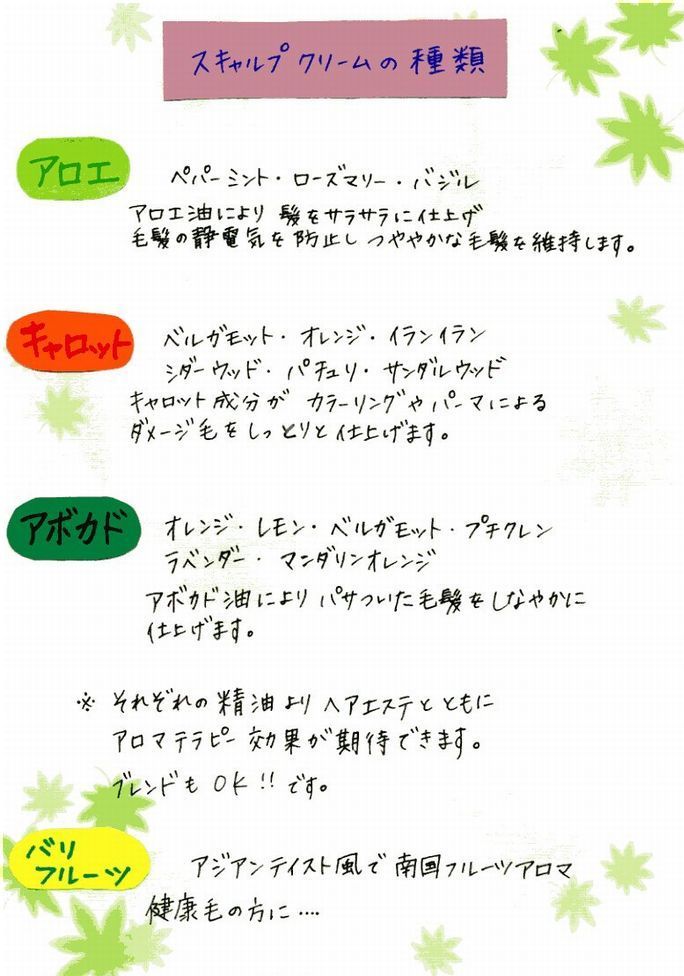 スキャルプクリームの種類
アロエ
ペパーミント・ローズマリー・バジル
アロエ油により 髪をサラサラに仕上げ
毛髪の静電気を防止し つややかな毛髪を維持します。
キャロット
ベルガモット・オレンジ・イランイラン
シダーウッド・パチュリ・サンダルウッド
キャロット成分が カラーリングやパーマによる
ダメージ毛をしっとりと仕上げます。
アボカド
オレンジ・レモン・ベルガモット・プチクレン
ラベンダー・マンダリンオレンジ
アボカド油により パサついた毛髪をしなやかに
仕上げます。
※ それぞれの精油より ヘアエステとともに
アロマテラピー効果が期待できます。
ブレンドも OK!! です。
バリ
フルーツ
アジアンテイスト風で 南国フルーツアロマ
健康毛の方に‥‥